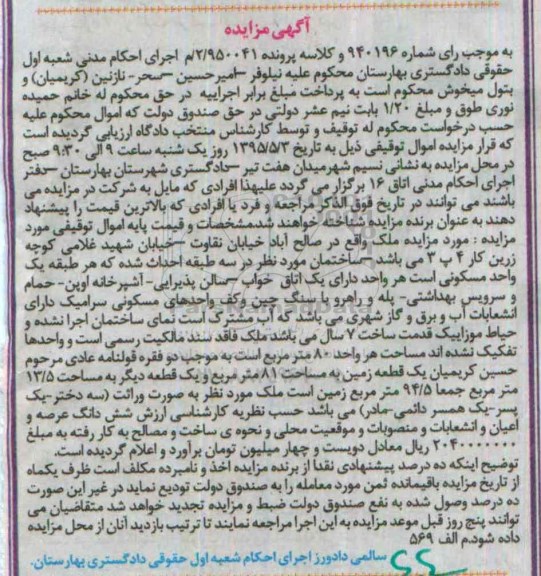 آگهی مزایده
به موجب رای شماره ۹۴۰۱۹۶ و کلاسه پرونده ۲/۹۵۰۰۴۱/م اجرای احکام مدنی شعبه اول
حقوقی دادگستری بهارستان محکوم علیه نیلوفر –امیرحسین –سحر- نازنین (کریمیان) و
بتول میخوش محکوم است به پرداخت مبلغ برابر اجراییه در حق محکوم له خانم حمیده
نوری طوق و مبلغ ۱/۲۰ بابت نیم عشر دولتی در حق صندوق دولت که اموال محکوم علیه
حسب درخواست محکوم له توقیف و توسط کارشناس منتخب دادگاه ارزیابی گردیده است
که قرار مزایده اموال توقیفی ذیل به تاریخ ۱۳۹۵/۵/۳ روز یک شنبه ساعت ۹ الی ۹:۳۰ صبح
در محل مزایده به نشانی نسیم شهرمیدان هفت تیر –دادگستری شهرستان بهارستان –دفتر
اجرای احکام مدنی اتاق ۱۶ برگزار می گردد علیهذا افرادی که مایل به شرکت در مزایده می
باشند می توانند در تاریخ فوق الذکر مراجعه و فرد یا افرادی که بالاترین قیمت را پیشنهاد
دهند به عنوان برنده مزایده شناخته خواهند شد.مشخصات و قیمت پایه اموال توقیفی مورد
مزایده : مورد مزایده ملک واقع در صالح آباد خیابان نقاوت –خیابان شهید غلامی کوچه
زرین کار ۴ پ ۳ می باشد –ساختمان مورد نظر در سه طبقه احداث شده که هر طبقه یک
واحد مسکونی است هر واحد دارای یک اتاق خواب –سالن پذیرایی- آشپزخانه اوپن- حمام
و سرویس بهداشتی- پله و راهرو با سنگ چین وکف واحدهای مسکونی سرامیک دارای
انشعابات آب و برق و گاز شهری می باشد که آب مشترک است نمای ساختمان اجرا نشده و
حیاط موزاییک قدمت ساخت ۷ سال می باشد ملک فاقد سند مالکیت رسمی است و واحدها
تفکیک نشده اند مساحت هر واحد ۸۰ متر مربع است به موجب دو فقره قولنامه عادی مرحوم
حسین کریمیان یک قطعه زمین به مساحت ۸۱ متر مربع و یک قطعه دیگر به مساحت ۱۳/۵
متر مربع جمعا ۹۴/۵ متر مربع زمین است ملک مورد نظر به صورت وراثت (سه دختر-یک
پسر-یک همسر دائمی-مادر) می باشد حسب نظریه کارشناسی ارزش شش دانگ عرصه و
اعیان و انشعابات و منصوبات و موقعیت محلی و نحوه ی ساخت و مصالح به کار رفته به مبلغ
۲۰۴۰۰۰۰۰۰۰ ریال معادل دویست و چهار میلیون تومان برآورد و اعلام گردیده است.
توضیح اینکه ده درصد پیشنهادی نقدا از برنده مزایده اخذ و نامبرده مکلف است ظرف یکماه
از تاریخ مزایده باقیمانده ثمن مورد معامله را به صندوق دولت تودیع نماید در غیر این صورت
ده درصد وصول شده به نفع صندوق دولت ضبط و مزایده تجدید خواهد شد متقاضیان می
توانند پنج روز قبل موعد مزایده به این اجرا مراجعه نمایند تا ترتیب بازدید آنان از محل مزایده
داده شود.م الف ۵۶۹
سالمی دادورز اجرای احکام شعبه اول حقوقی دادگستری بهارستان.